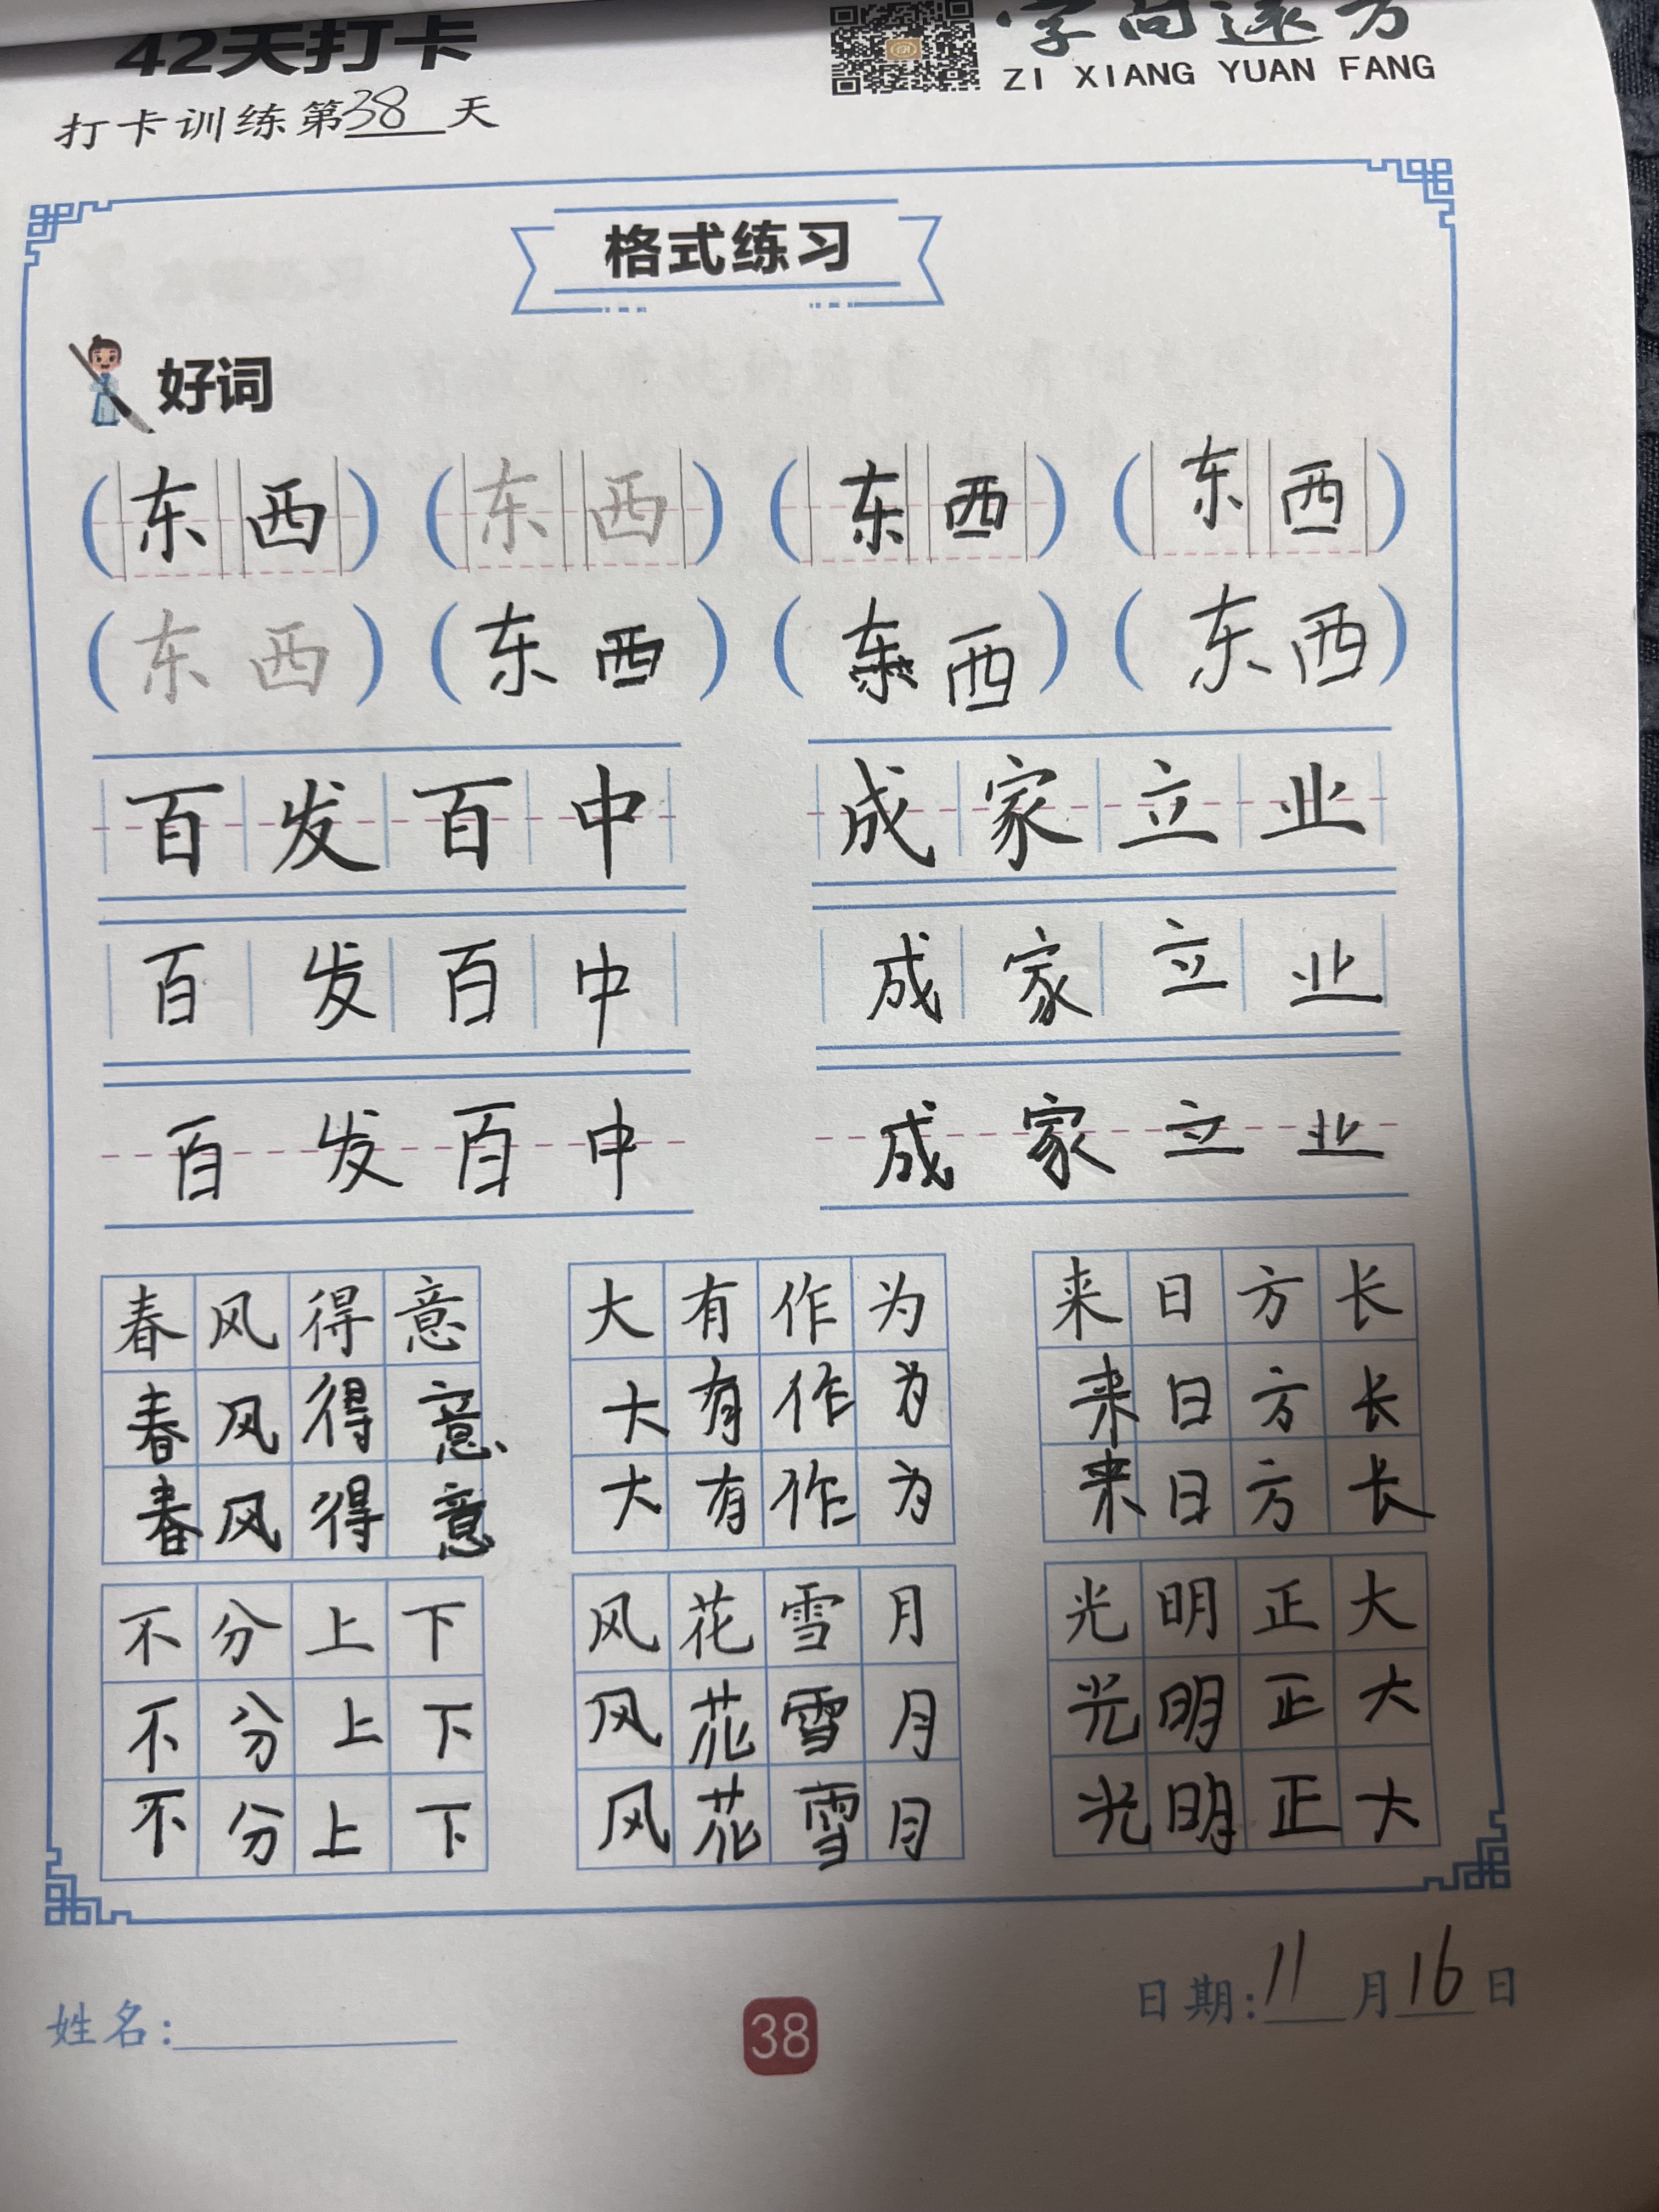 42天打卡
字向远方
ZI XIANG YUAN FANG
打卡训练第38天
格式练习
好词
(东西) (东西) (东西) (东西)
(东西) (东西) (东西) (东西)
百发百中 成家立业
百发百中 成家立业
百发百中 成家立业
春风得意 大有作为 来日方长
春风得意 大有作为 来日方长
春风得意 大有作为 来日方长
不分上下 风花雪月 光明正大
不分上下 风花雪月 光明正大
不分上下 风花雪月 光明正大
姓名: 38 日期:11月16日